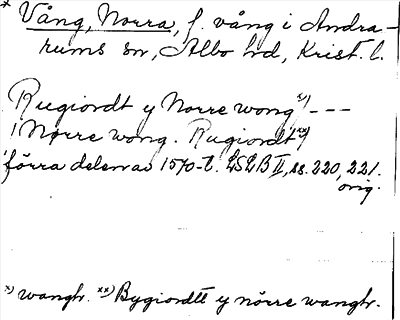 * Vång, Norra, f. vång i Andra-
rums sn, Albo hd, Krist. l.
Rugiordt y Norre wong *) ---
/ Nørre wong. Rugiordt **)
förra delen av 1570-t. LSLB II, ss. 220, 221.
orig.
*) wangh. **) Bygiordtt y nörre wangh.